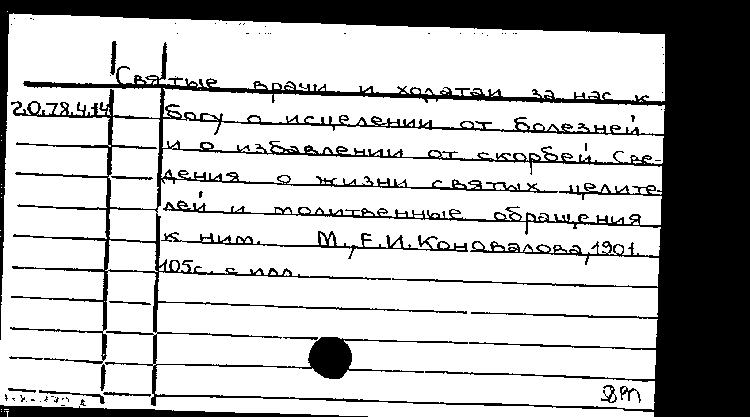 Святые врачи и ходатаи за нас к
20.78.4.14 Богу о исцелении от болезней
и о избавлении от скорбей. Све-
дения о жизни святых целите-
лей и молитвенные обращения
к ним. М., Е.И. Коновалова, 1901.
105с. с илл.